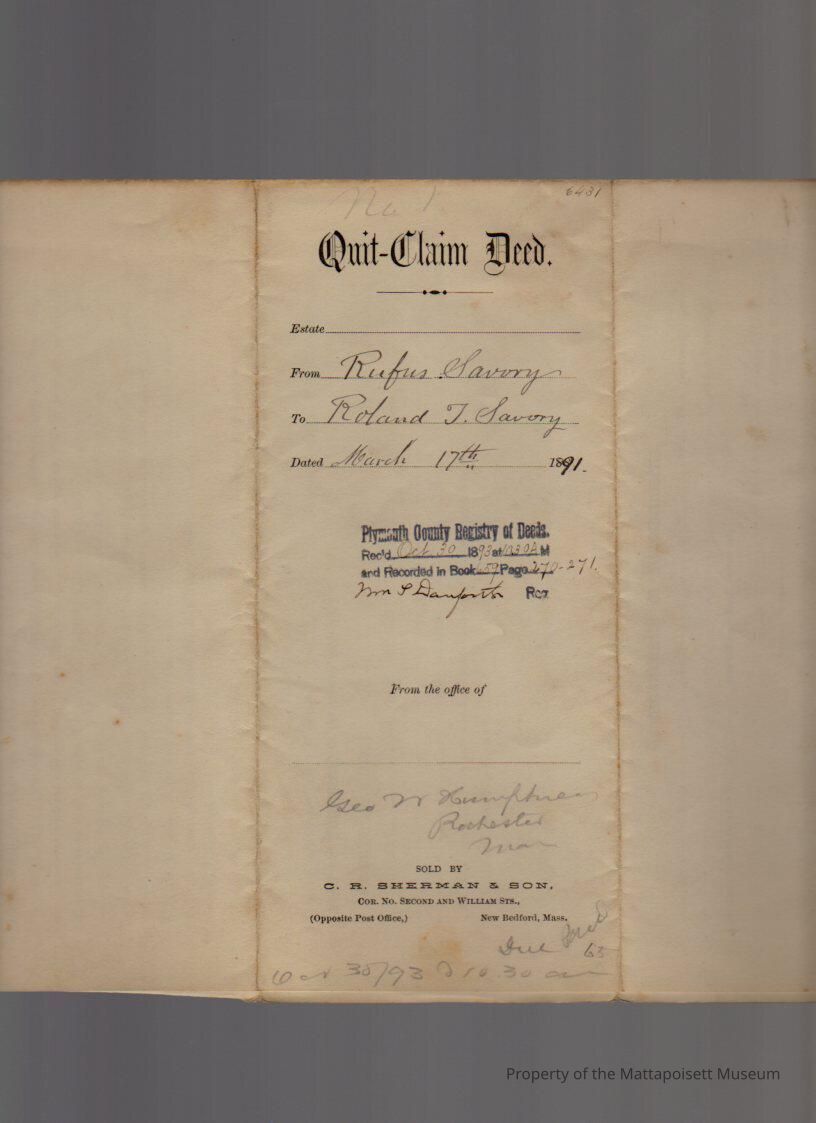 No 1
6431
Quit-Claim Deed.
Estate
From Rufus Savory
To Roland T. Savory
Dated March 17th 1891.
Plymouth County Registry of Deeds.
Rec'd Oct. 30 1893 at 10.30 A M
and Recorded in Book 659 Page 270-271.
Wm S Danforth Reg
From the office of
Geo W Humphrey
Rochester
Mass
SOLD BY
C. R. SHERMAN & SON,
COR. NO. SECOND AND WILLIAM STS.,
(Opposite Post Office,) New Bedford, Mass.
Due
65
Oct 30/93 10.30 am
Property of the Mattapoisett Museum